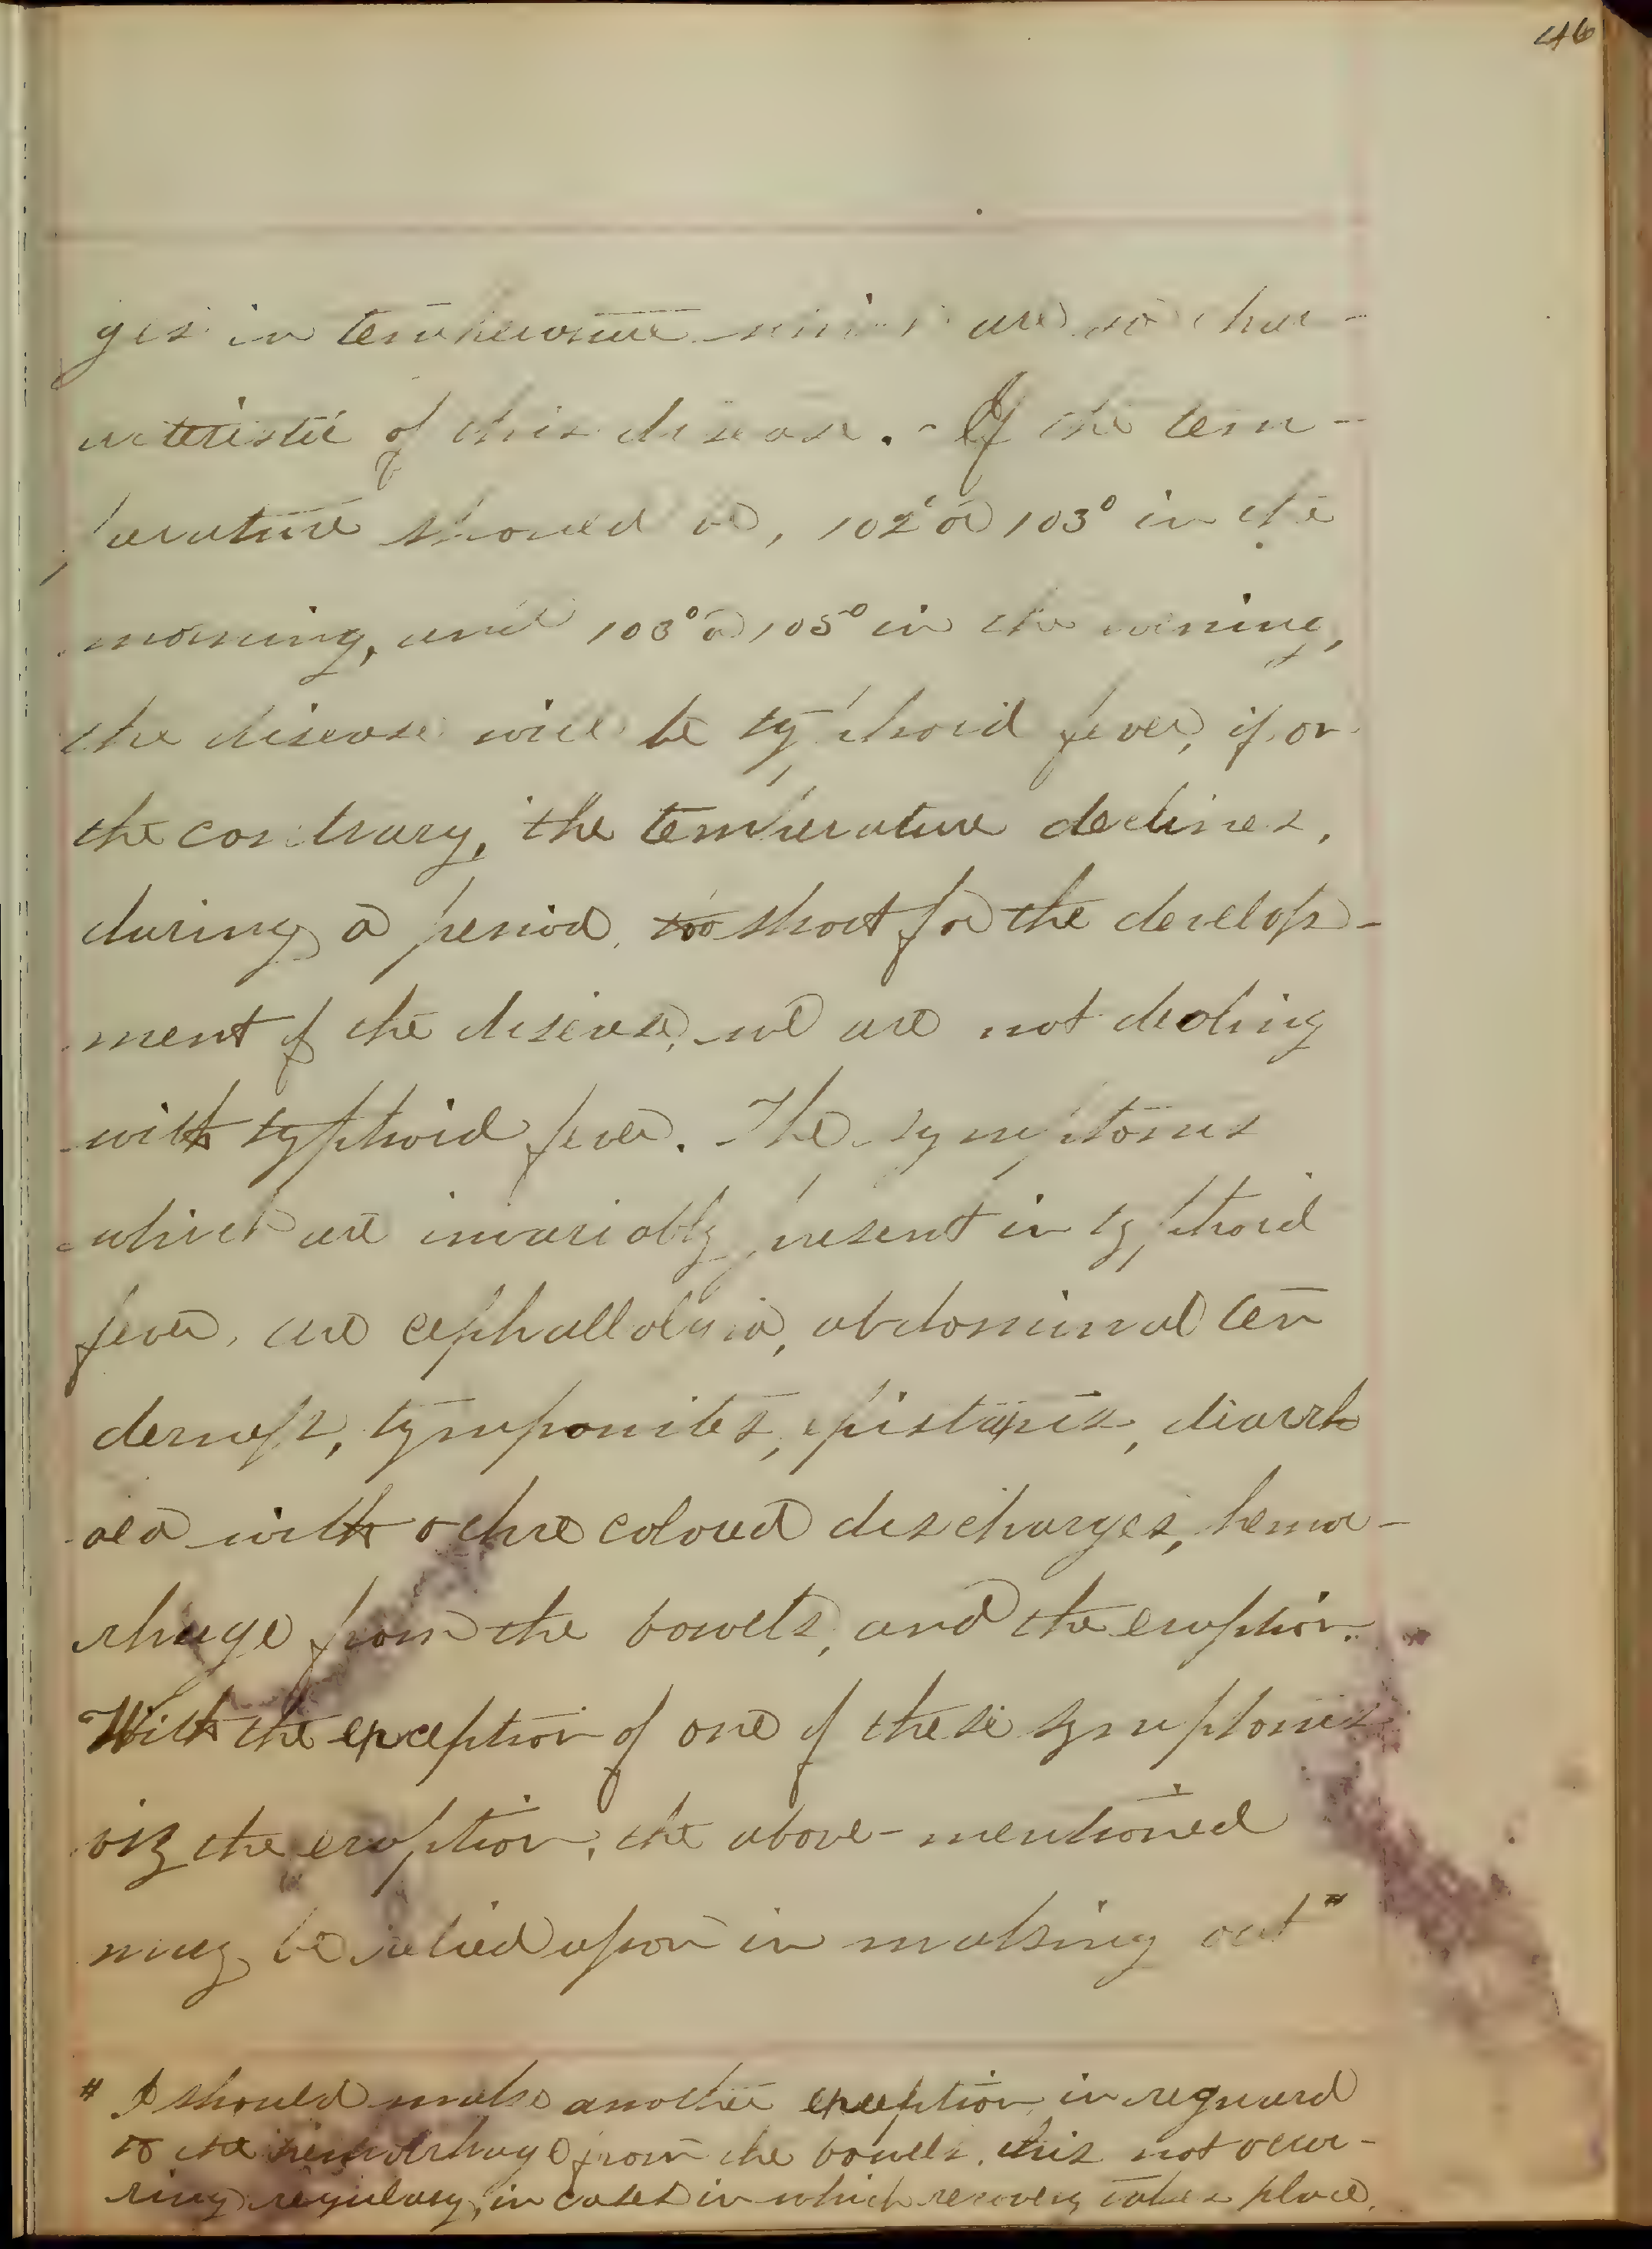 46
ges in temperature which are so char-
acteristic of this disease. - If the tem-
perature should be, 102° or 103° in the
morning, and 103° or 105° in the evening,
the disease will be typhoid fever, if, on
the contrary, the temperature declines,
during a period, too short for the develop-
ment of the disease, we are not dealing
with typhoid fever. The symptoms
which are invariably present in typhoid
fever, are cephallalgia, abdominal ten
derness, tymponites, epistaxis, diarrh
oea with ochre colored discharges, hemo-
rhage from the bowels, and the eruption.
With the exception of one of these symptoms
viz the eruption, the above-mentioned
may be relied upon in making out #
# I should make another exception in reguard
to the hemorrhage from the bowels, this not occur-
ring regulary, in cases in which recovery takes place.